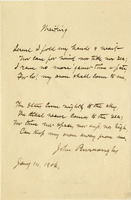 Waiting
Serene I fold my hands & wait
Nor care for wind nor tide nor sea;
I rave no more 'gainst time or fate
For lo! my own shall come to me.
The stars come nightly to the sky,
The tidal wave comes to the sea;
Nor time nor space nor deep nor high
Can keep my own away from me.
John Burroughs
Jany 14, 1906